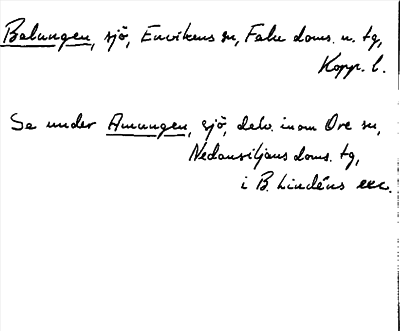 Balungen, sjö, Envikens sn, Falu doms. u. tg,
Kopp. l.
Se under Amungen, sjö, delv. inom Ore sn,
Nedansiljans doms. tg,
i B. Lindéns exc.